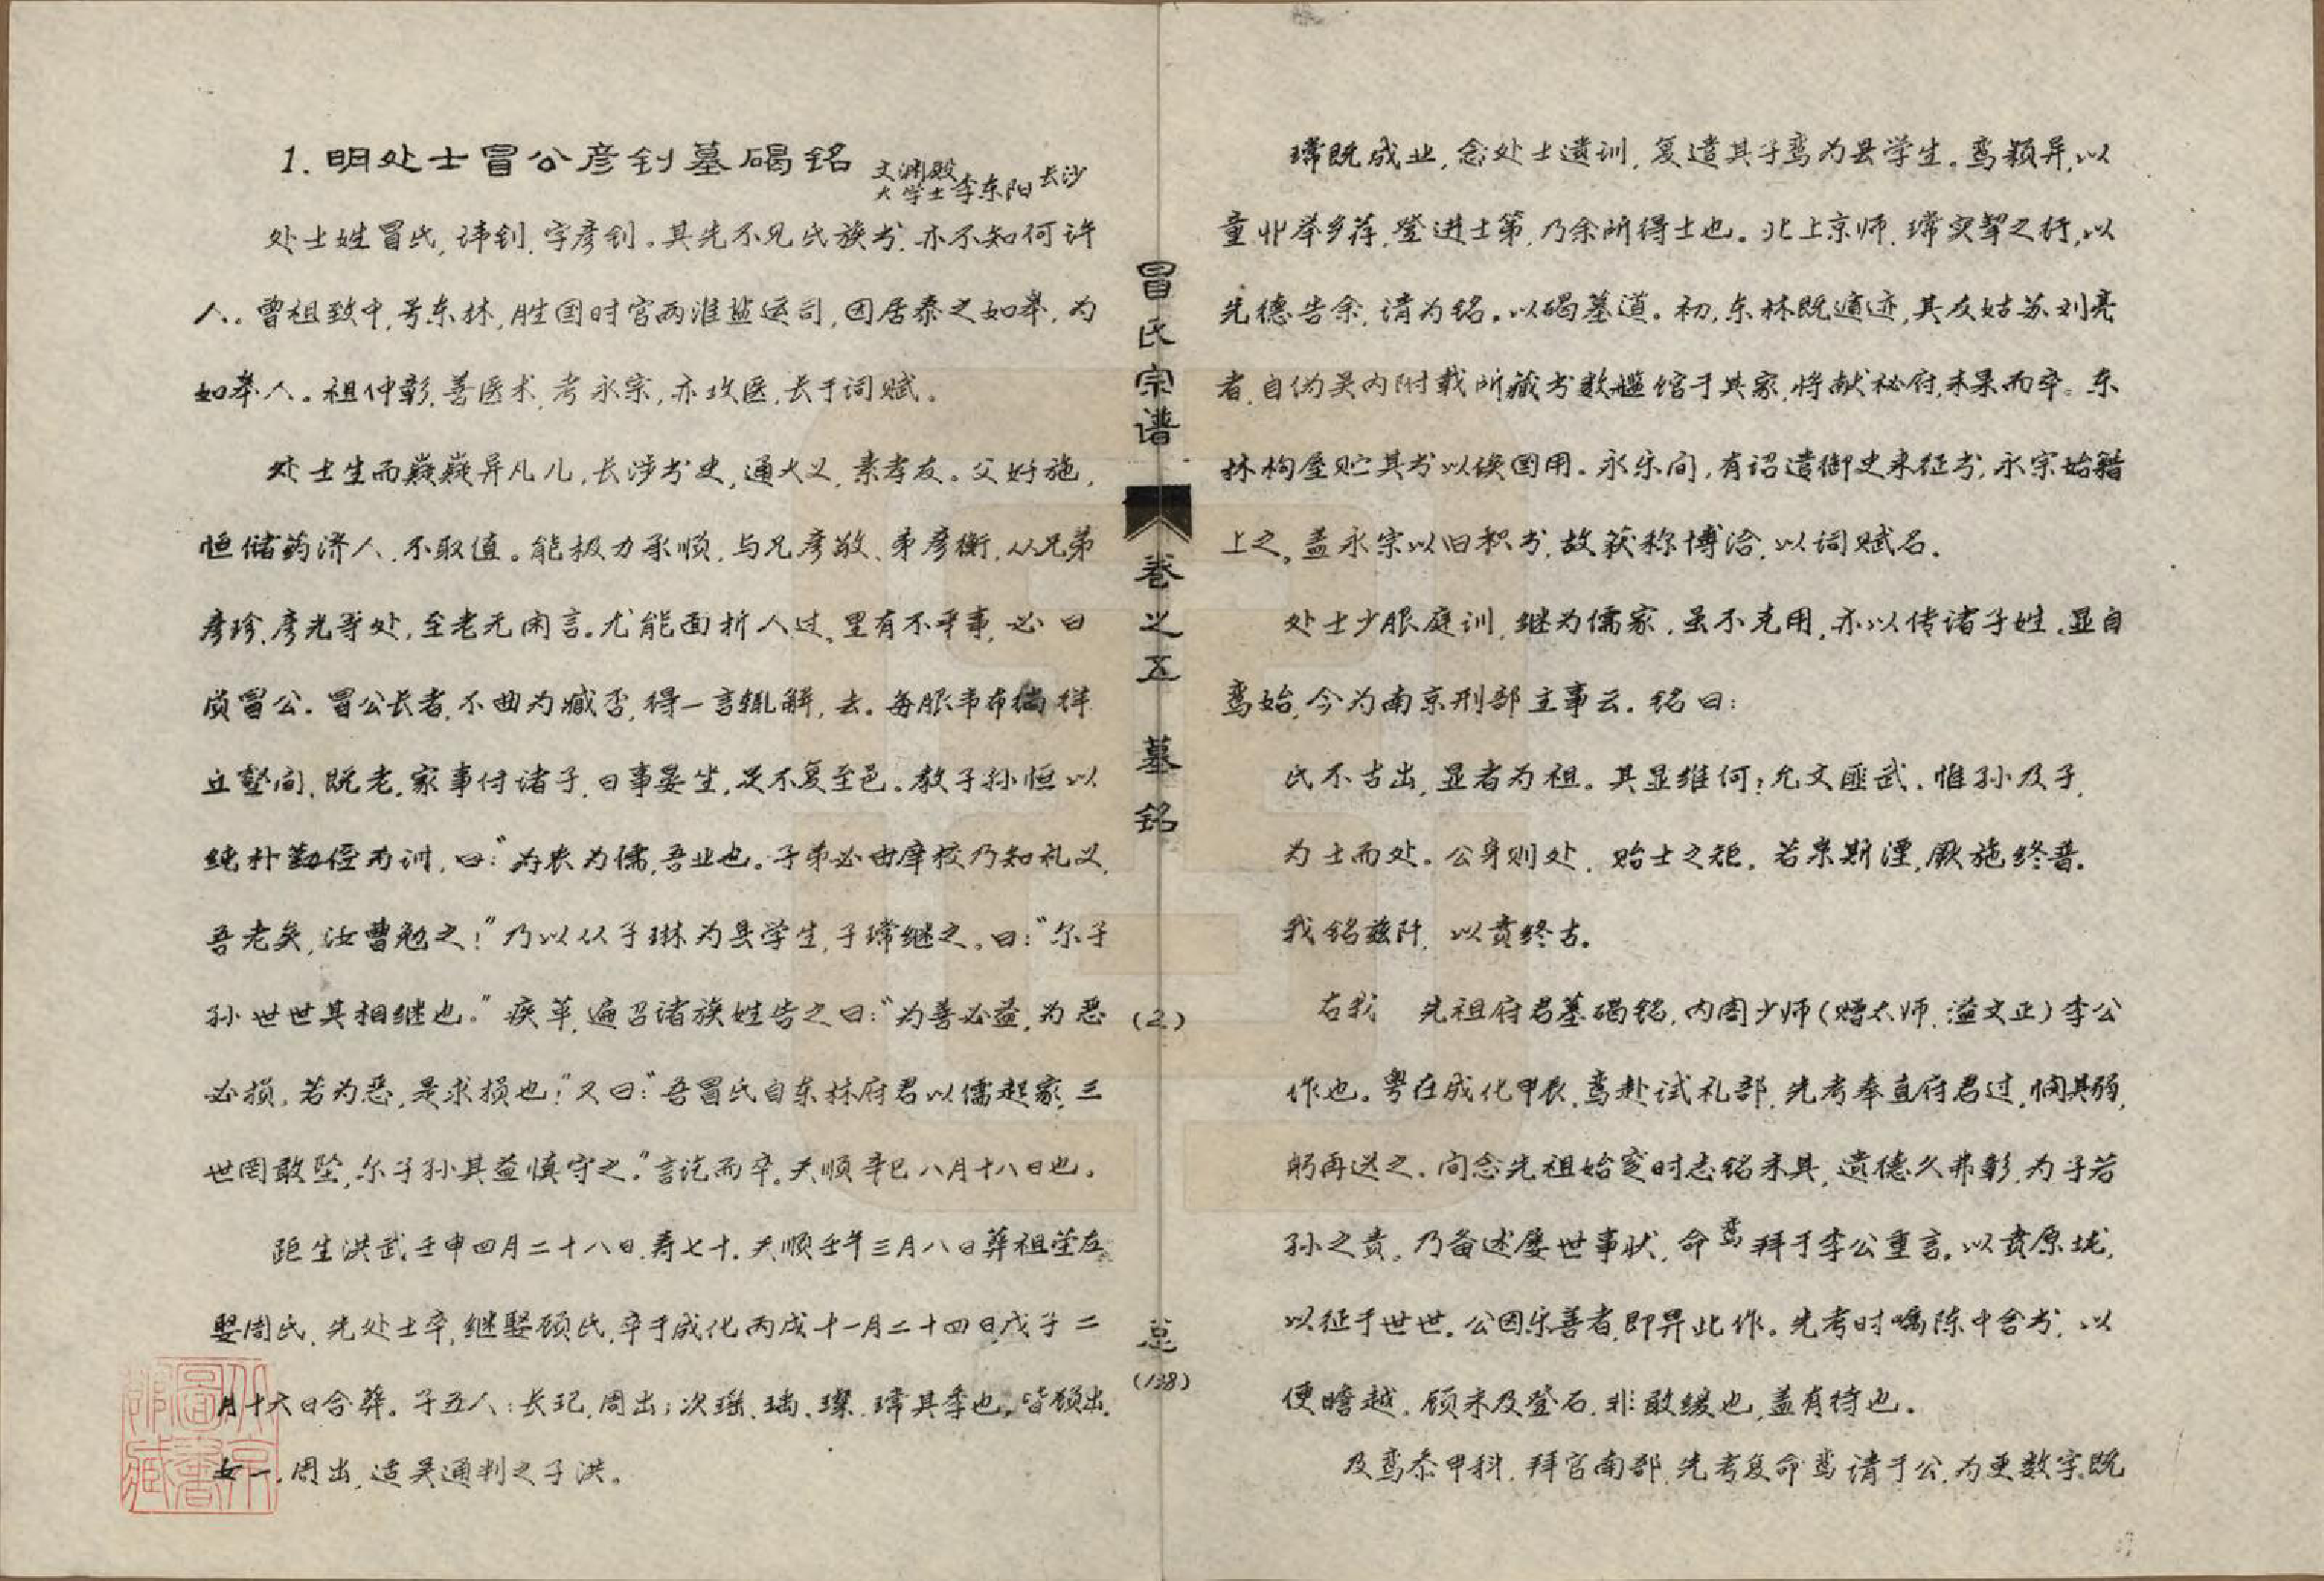 1. 明处士冒公彦钊墓碣铭 文渊殿大学士李东阳长沙
处士姓冒氏，讳钊，字彦钊。其先不见氏族书，亦不知何许
人。曾祖致中，号东林，胜国时官两淮盐运司，因居泰之如皋，为
如皋人。祖仲彰，善医术，考永宗，亦攻医，长于词赋。
处士生而嶷嶷异凡儿，长涉书史，通大义，素孝友。父好施，
恒储药济人，不取值。能极力承顺，与兄彦敬、弟彦衡，从兄弟
彦珍、彦光等处，至老无闲言。尤能面折人过，里有不平事，必曰
质冒公。冒公长者，不曲为臧否，得一言辄解，去。每服韦布徜徉
丘壑间，既老，家事付诸子，日事晏坐，足不复至邑。教子孙恒以
纯朴勤俭为训，曰：“为农为儒，吾业也。子弟必由庠校乃知礼义，
吾老矣，汝曹勉之！”乃以从子琳为县学生，子㻶继之。曰：“尔子
孙世世其相继也。”疾革，遍召诸族姓告之曰：“为善必益，为恶
必损。若为恶，是求损也！”又曰：“吾冒氏自东林府君以儒起家，三
世罔敢坠，尔子孙其益慎守之。”言讫而卒。天顺辛巳八月十八日也。
距生洪武壬申四月二十八日，寿七十。天顺壬午三月八日葬祖茔左。
娶周氏，先处士卒，继娶顾氏，卒于成化丙戌十一月二十四日，戊子二
月十六日合葬。子五人：长玘，周出；次瑶、瑀、璨、㻶其季也，皆顾出。
女一，周出，适吴通判之子洪。
冒氏宗谱
卷之五
墓铭
(2)
总
(128)
㻶既成业，念处士遗训，复遣其子鸾为县学生。鸾颖异，以
童丱举乡荐，登进士第，乃余所得士也。北上京师，㻶实挈之行，以
先德告余，请为铭。以碣墓道。初，东林既遁迹，其友姑苏刘亮
者，自伪吴内附载所藏书数艦馆于其家，将献秘府，未果而卒。东
林构屋贮其书以俟国用。永乐间，有诏遣御史来征书，永宗始籍
上之。盖永宗以旧积书，故获称博洽，以词赋名。
处士少服庭训，继为儒家，虽不克用，亦以传诸子姓，显自
鸾始，今为南京刑部主事云。铭曰：
氏不古出，显者为祖。其显维何？允文匪武。惟孙及子，
为士而处。公身则处，贻士之矩。若泉斯湮，厥施终普。
我铭兹阡，以贲终古。
右我　先祖府君墓碣铭，内阁少师（赠太师，谥文正）李公
作也。粤在成化甲辰，鸾赴试礼部，先考奉直府君过，悯其弱，
躬再送之。间念先祖始窆时志铭未具，遗德久弗彰，为子若
孙之责。乃备述屡世事状，命鸾拜于李公重言。以贲原垅，
以征于世世。公因乐善者，即畀此作。先考时嘱陈中舍书，以
便瞻越。顾未及登石，非敢缓也，盖有待也。
及鸾忝甲科，拜官南部，先考复命鸾请于公，为更数字，既
北京图书馆藏